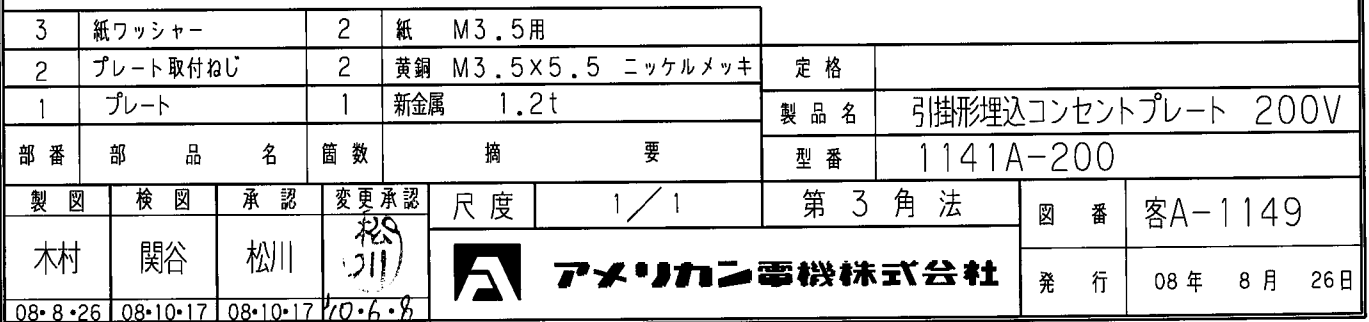 3 紙ワッシャー 2 紙 M3.5用
2 プレート取付ねじ 2 黄銅 M3.5×5.5 ニッケルメッキ
1 プレート 1 新金属 1.2t
部番 部品名 箇数 摘要
定格
製品名 引掛形埋込コンセントプレート 200V
型番 1141A-200
製図 検図 承認 変更承認
木村 関谷 松川 松川
08・8・26 08・10・17 08・10・17 '10・6・8
尺度 1/1 第3角法
アメリカン電機株式会社
図番 客A-1149
発行 08年 8月 26日